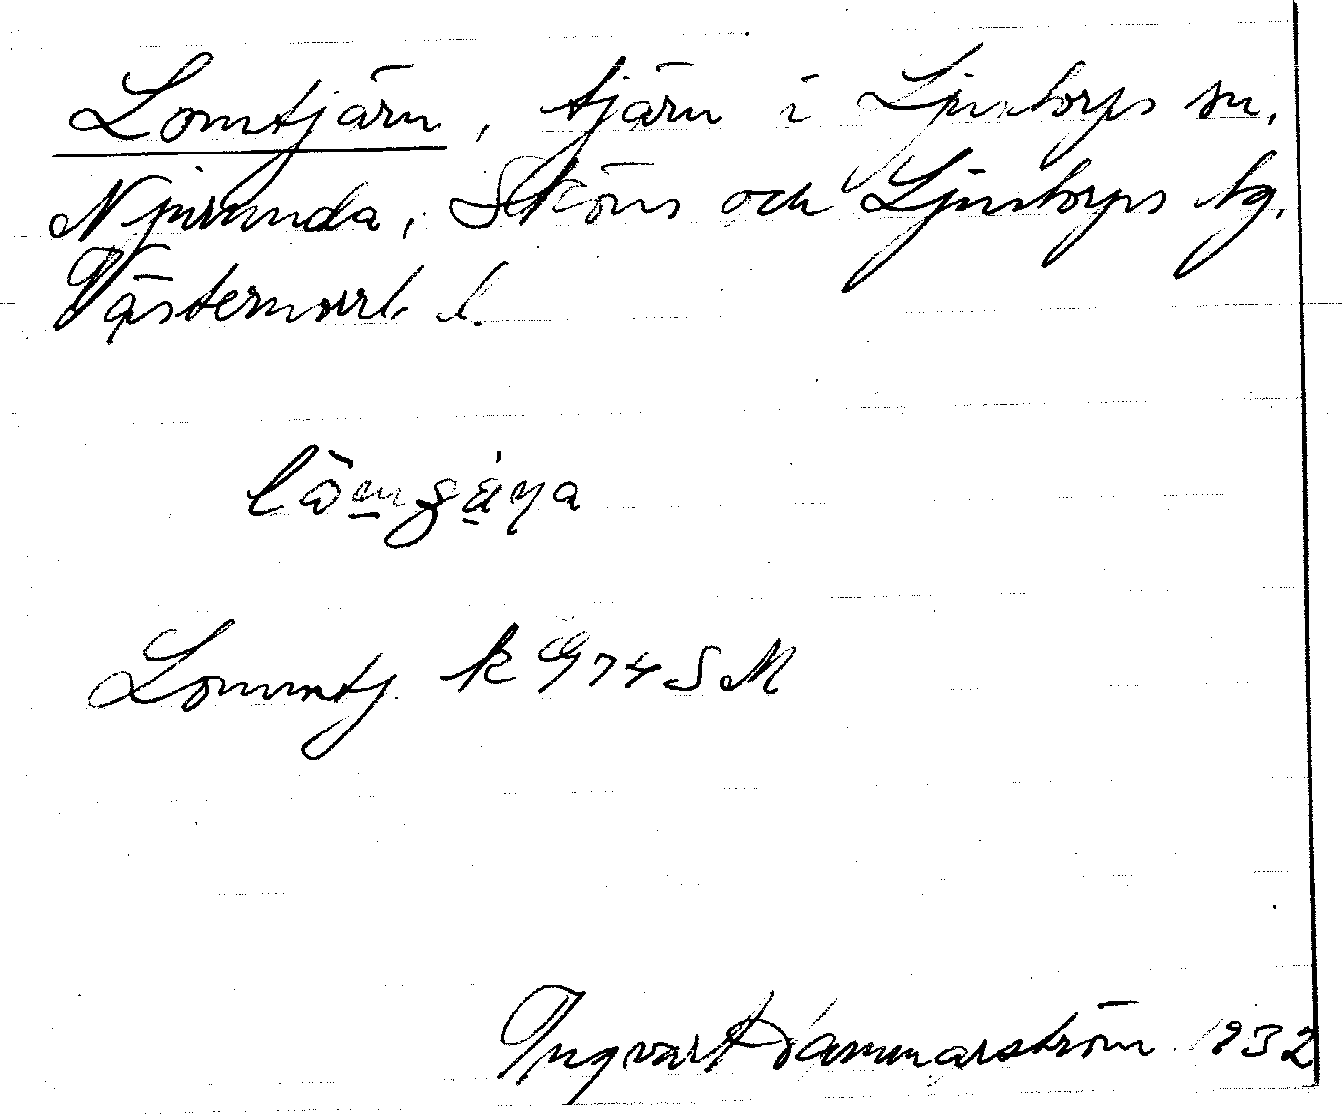 Lomtjärn, tjärn i Ljustorps sn,
Njurunda, Sköns och Ljustorps tg,
Västernorrl. l.
Lommtj. k G74SM
Ingvar Hammarström 1932